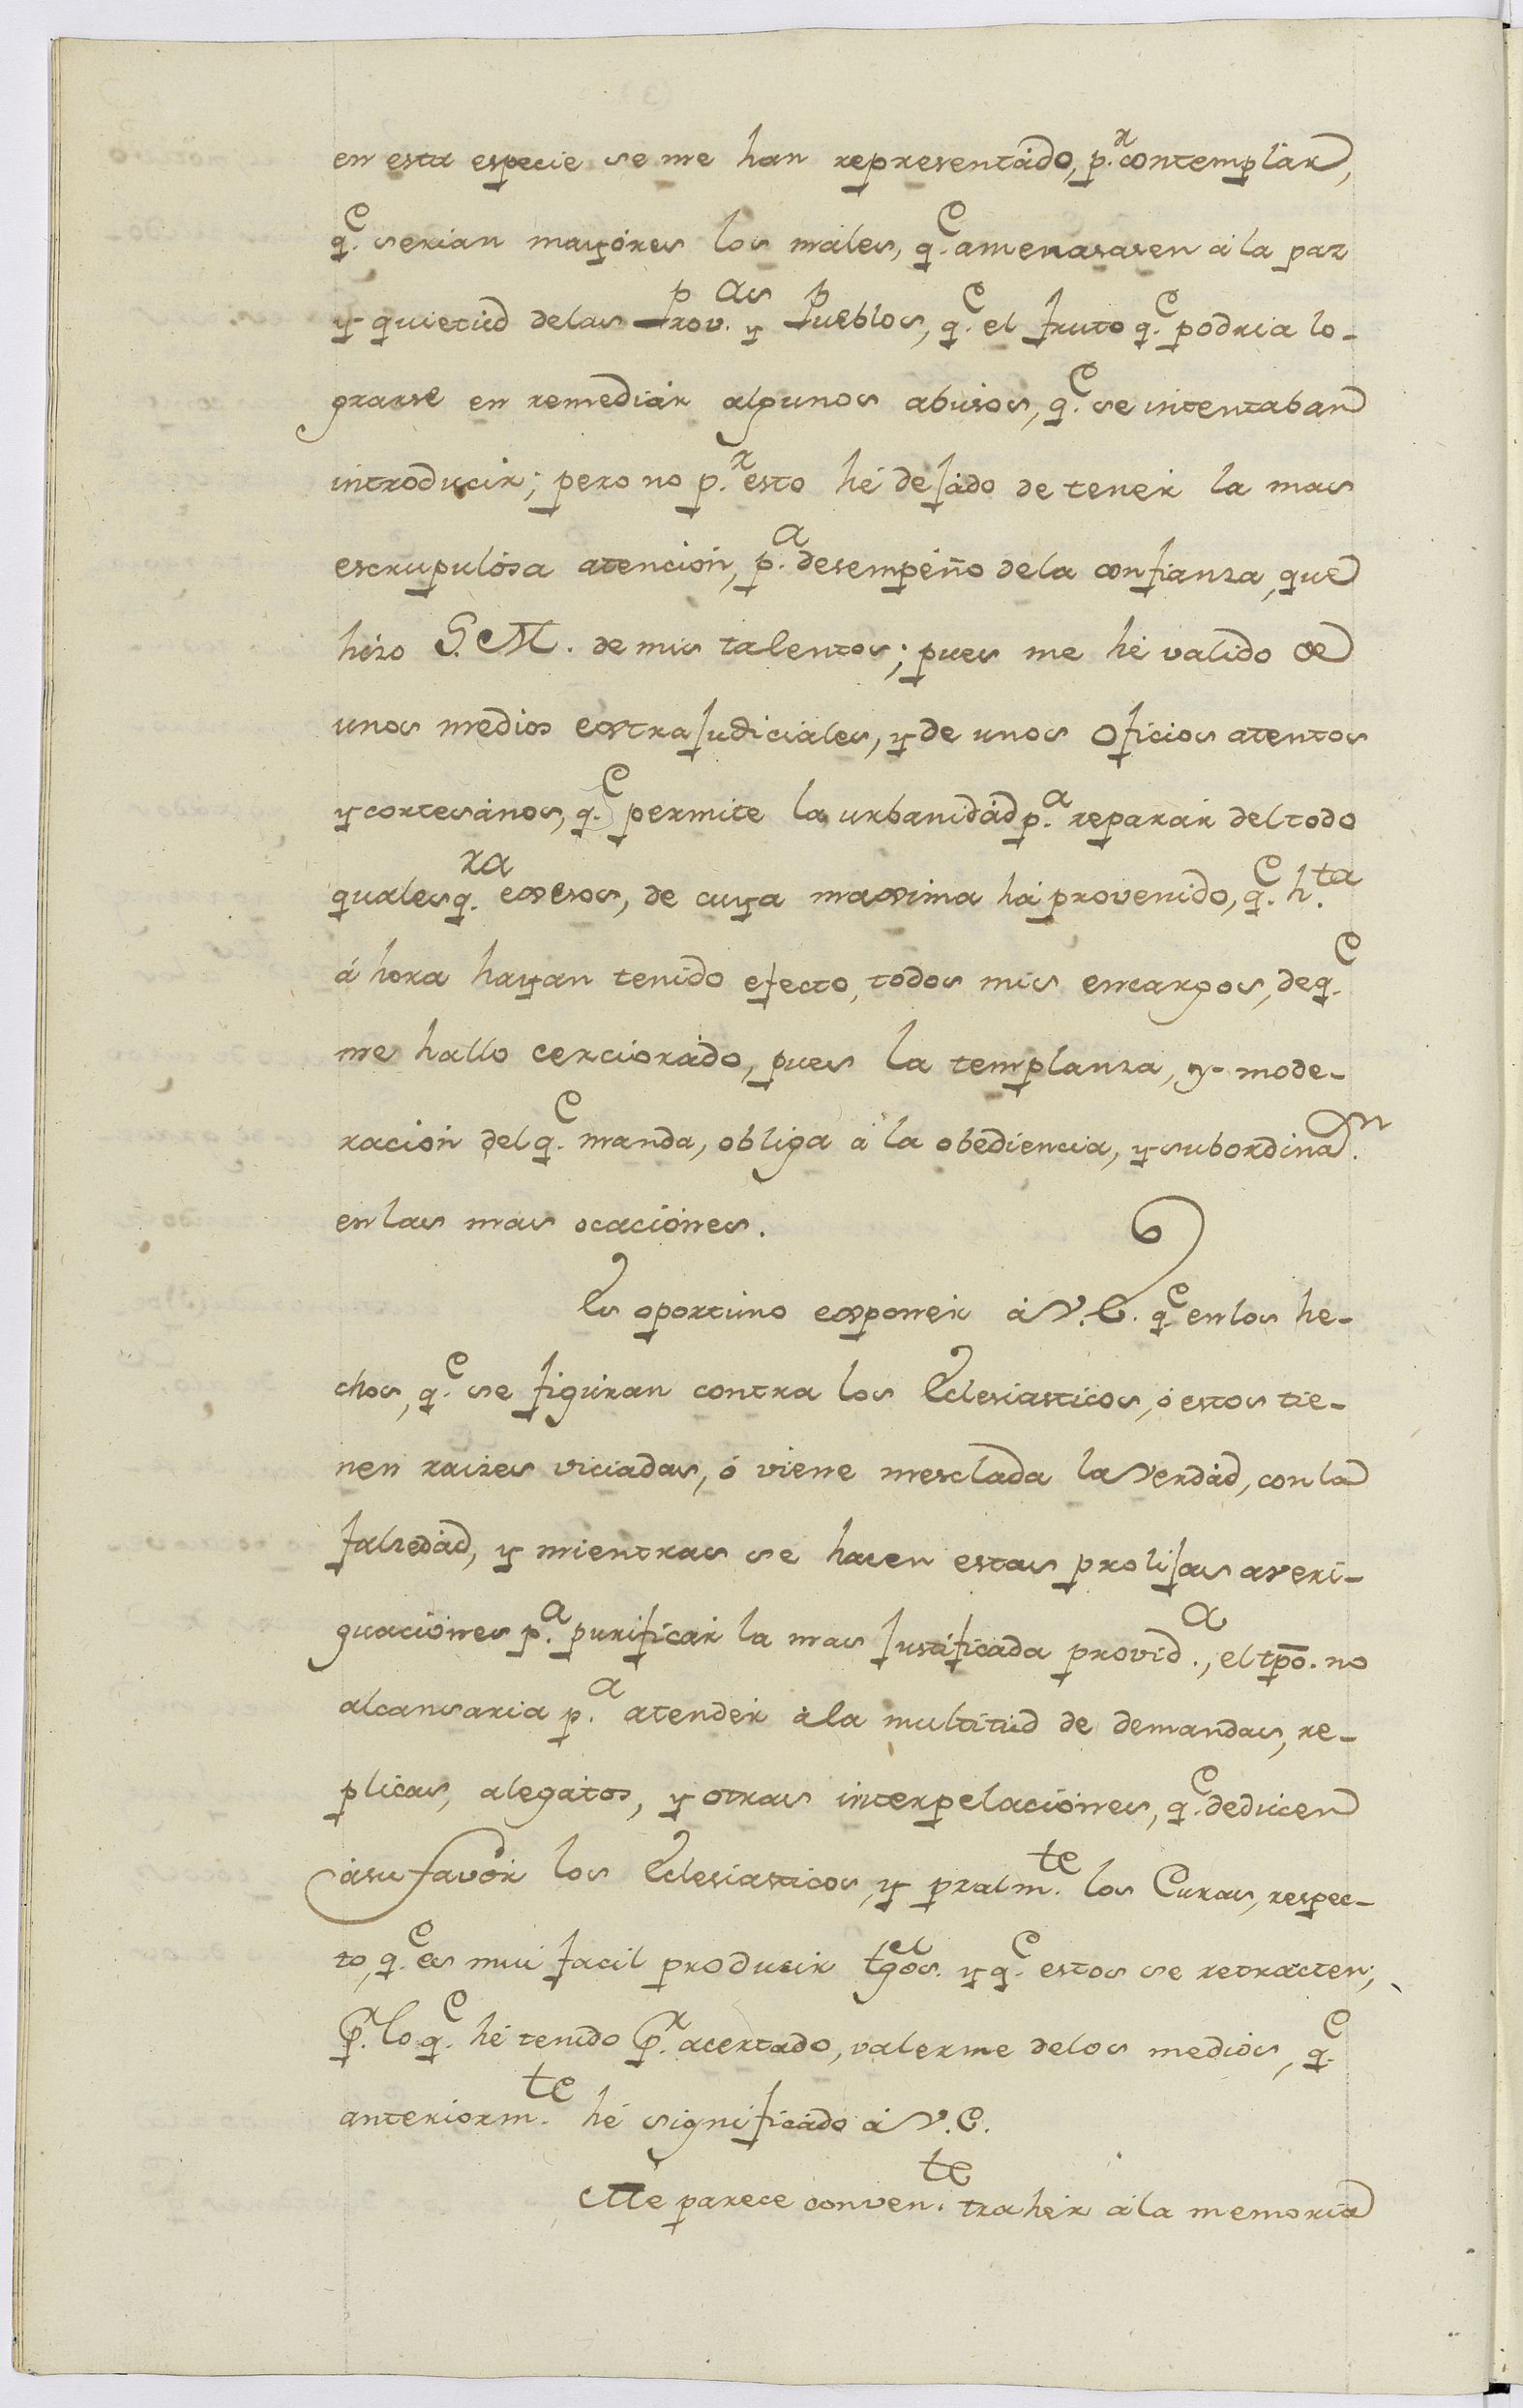 en esta especie se me han representádo, p.r contemplar,
q.e serian mayóres los máles, q.e amenasasen á la paz
y quietúd delas Prov.as y Pueblos, q.e el fruto q.e podria lo-
grarse en remediár algunos abúsos, q.e se intentaban
introducir; pero no p.r esto hé dejádo de tenér la mas
escrupulósa atención, p.a desempéño dela confianza, que
hizo S. M. de mis talentos; pues me hé valído de
unos medios extrajudiciales, y de unos oficios atentos
y cortesános, q.e permite la urbanidád p.a reparár del todo
qualesq.ra excesos, de cuya maxima há provenido, q.e h.ta
á hora hayan tenido efecto, todos mis encargos, deq.e
me hallo cerciorádo, pues la templanza, y mode-
ración del q.e manda, obliga á la obediencia, y subordina.on
en las mas ocaciónes.
Es oportúno exponér á V.E. q.e en los he-
chos, q.e se figúran contra los Eclesiasticos, ó estos tie-
nen raizes viciadas, ó viene mesclada la verdád, con la
falsedád, y mientras se hacen estas prolijas averi-
guaciónes p.a purificár la mas justificada provid.a, el tpō. no
alcansaria p.a atendér á la multitúd de demandas, re-
plicas, alegátos, y otras interpelaciónes, q.e dedúcen
ásu favór los Eclesiasticos, y pralm.te los Curas, respec-
to, q.e es mui facil producir tgōs. y q.e estos se retracten;
p.r lo q.e hé tenido p.r acertado, valerme delos medios, q.e
anteriorm.te hé significádo á V.E.
Me parece conven.te trahér á la memoria